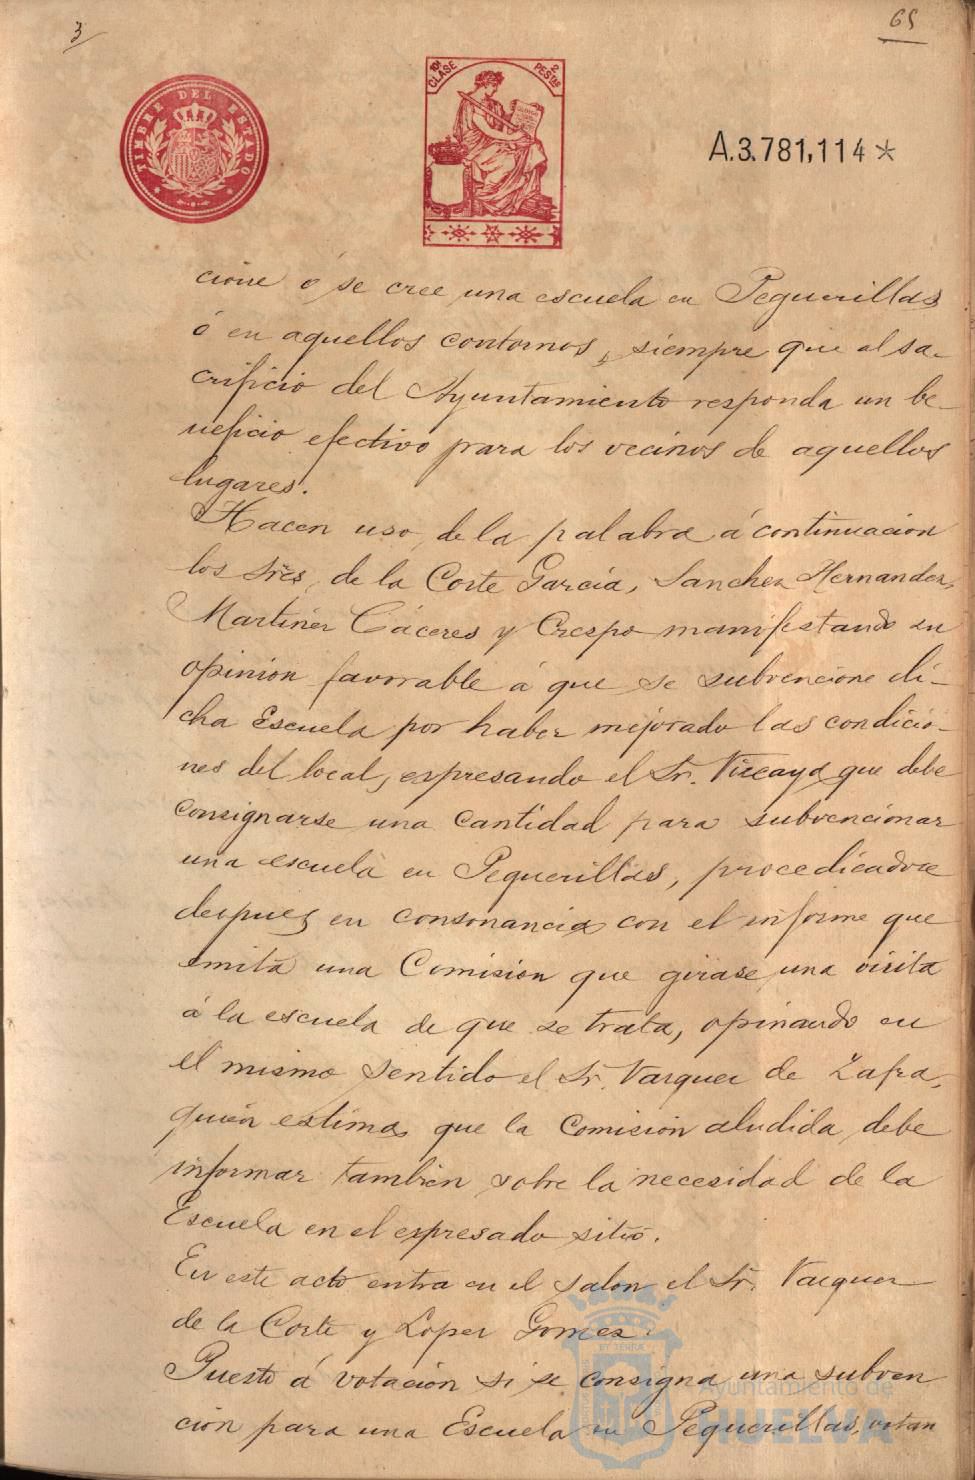 3
65
TIMBRE DEL ESTADO
10ª CLASE
2 PESTAS
A.3.781,114*
cione ó se cree una escuela en Peguerillas
ó en aquellos contornos, siempre que al sa-
crificio del Ayuntamiento responda un be-
neficio efectivo para los vecinos de aquellos
lugares.
Hacen uso de la palabra á continuacion
los Sres. de la Corte García, Sanchez Hernandez,
Martinez Cáceres y Crespo manifestando su
opinion favorable á que se subvencione di-
cha Escuela por haber mejorado las condicio-
nes del local, espresando el Sr. Vizcaya que debe
consignarse una cantidad para subvencionar
una escuela en Peguerillas, procediendose
despues en consonancia con el informe que
emita una Comision que girase una visita
á la escuela de que se trata, opinando en
el mismo sentido el Sr. Vazquez de Zafra,
quien estima que la Comision aludida debe
informar tambien sobre la necesidad de la
Escuela en el espresado sitio.
En este acto entra en el salon el Sr. Vazquez
de la Corte y Lopez Gomez.
Puesto á votacion si se consigna una subven
cion para una Escuela en Peguerillas, votan
Ayuntamiento de
HUELVA